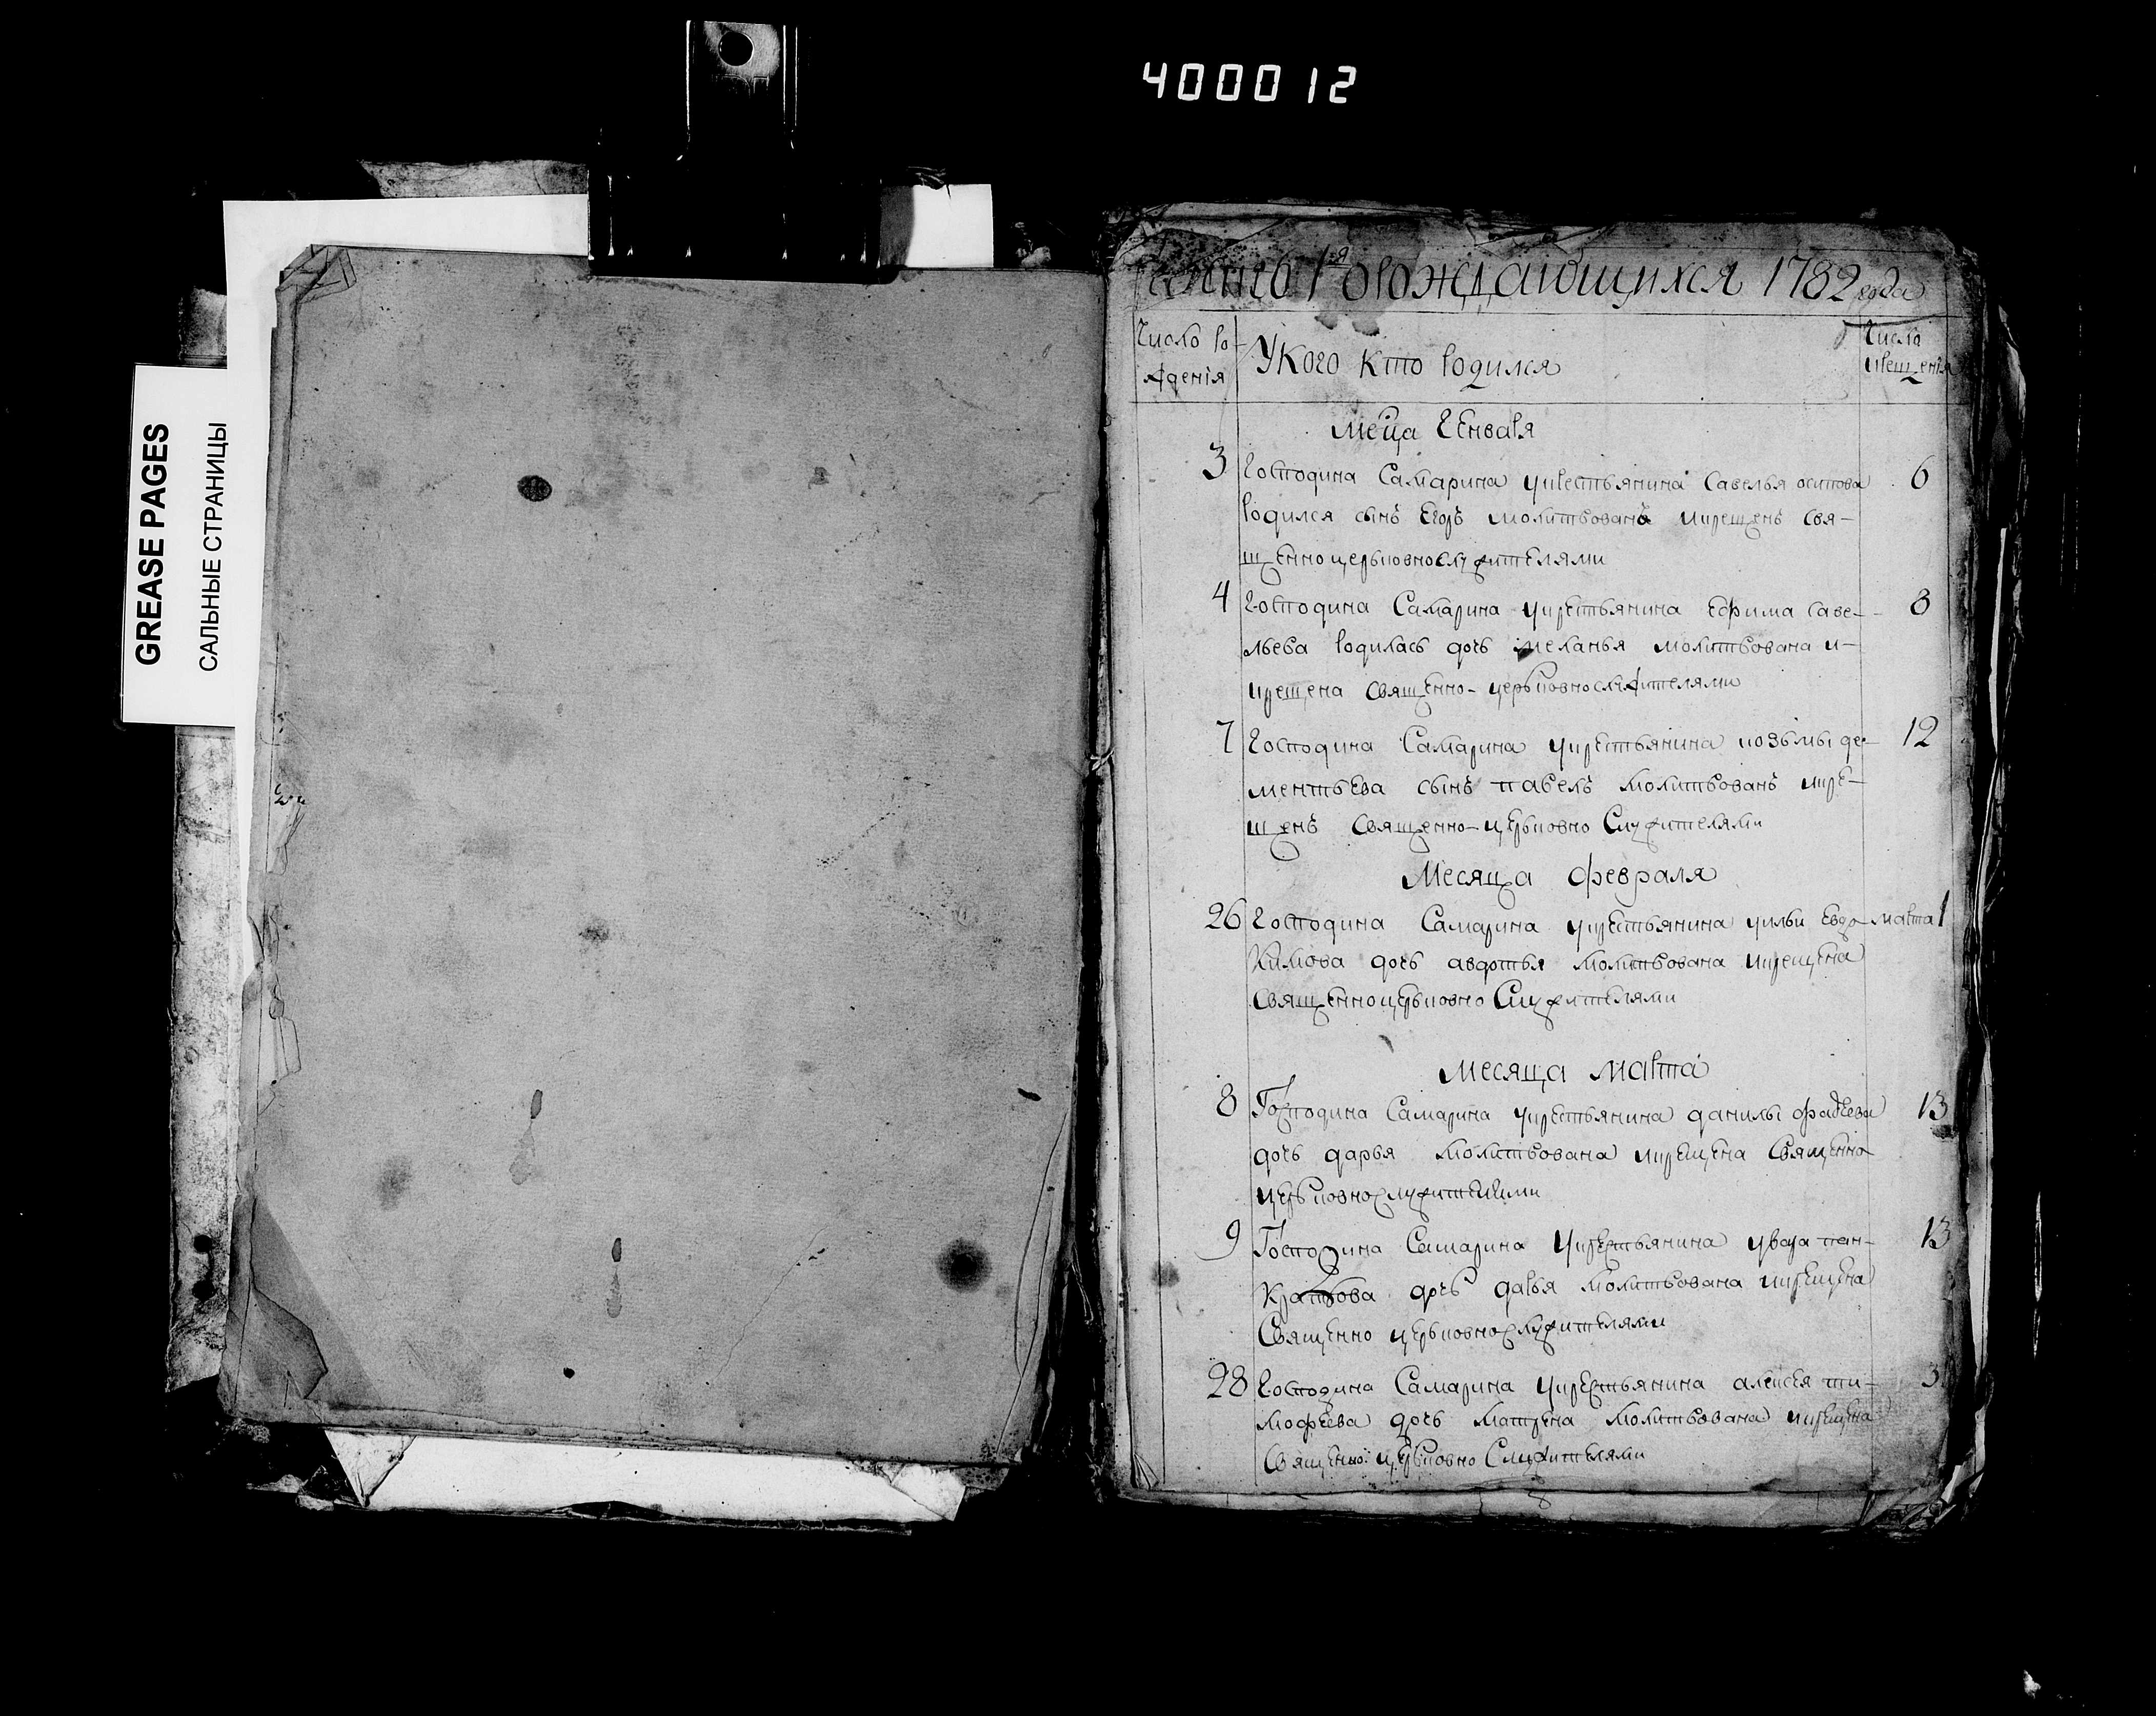 400012
GREASE PAGES
САЛЬНЫЕ СТРАНИЦЫ
1я ораждающихся 1782 года
Число ро-
жденія
У кого кто родился
Число
крещенія
меца Генваря
3 Господина Самарина укрестьянина Савелья осипова 6
родился сынъ Егоръ молитвованъ икрещенъ свя-
щенноцерьковнослужителями
4 Господина Самарина укрестьянина Ефима саве- 8
льева родилась дочь меланья молитвована и-
крещена священно-церьковнослужителями
7 Господина Самарина укрестьянина козьмы де- 12
ментьева сынъ павелъ молитвованъ икре-
щенъ священно-церьковно Служителями
Месяца февраля
26 Господина Самарина укрестьянина ильи Евдо- марта 1
кимова дочь авдотья молитвована икрещена
священноцерьковно Служителями
Месяца марта
8 Господина Самарина укрестьянина данилы фадеева 13
дочь дарья молитвована икрещена Священно
церьковнослужителями
9 Господина Самарина укрестьянина увара пан- 13
кратова дочь дарья молитвована икрещена
Священно церьковнослужителями
28 Господина Самарина укрестьянина алексея ти- 3
мофеева дочь матрена молитвована икрещена
Священно церьковно Служителями